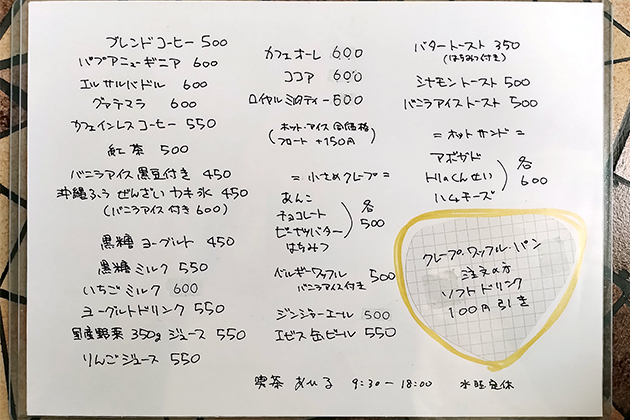 ブレンドコーヒー 500
パプアニューギニア 600
エルサルバドル 600
グァテマラ 600
カフェインレスコーヒー 550
紅茶 500
バニラアイス黒豆付き 450
沖縄ふう ぜんざいカキ氷 450
(バニラアイス付き 600)
黒糖ヨーグルト 450
黒糖ミルク 550
いちごミルク 600
ヨーグルトドリンク 550
国産野菜 350g ジュース 550
りんごジュース 550
カフェオーレ 600
ココア 600
ロイヤルミルクティー 600
(ホット・アイス同価格
フロート +150円)
= 小さめクレープ =
あんこ
チョコレート
ピーナツバター
はちみつ
各
500
ベルギーワッフル 500
バニラアイス付き
ジンジャーエール 500
エビス缶ビール 550
バタートースト 350
(はちみつ付き)
シナモントースト 500
バニラアイストースト 500
= ホットサンド =
アボガド
トリのくんせい
ハムチーズ
各
600
クレープ・ワッフル・パン
注文の方
ソフトドリンク
100円引き
喫茶 あひる 9:30-18:00 水曜定休